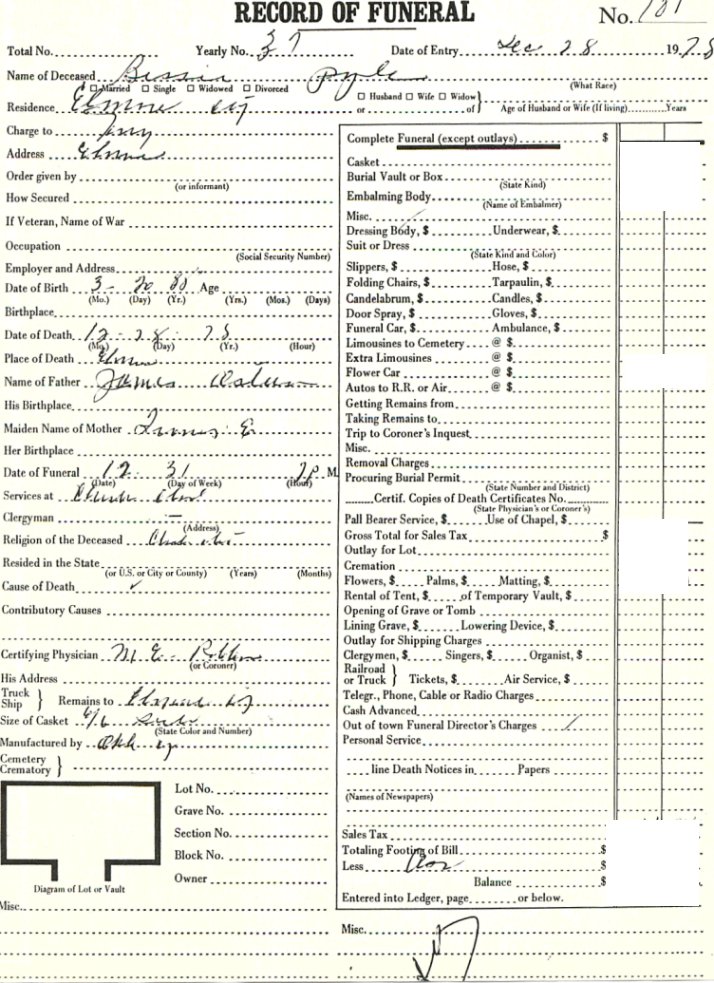 RECORD OF FUNERAL No. 181
Total No. Yearly No. 37 Date of Entry Dec 28 1978
Name of Deceased Bessie Pyle
(What Race)
☐ Married ☐ Single ☐ Widowed ☐ Divorced
☐ Husband ☐ Wife ☐ Widow
Residence or of Age of Husband or Wife (If living) Years
Charge to
Address
Order given by
(or informant)
How Secured
If Veteran, Name of War
Occupation
(Social Security Number)
Employer and Address
Date of Birth 3 - 20 80 Age
(Mo.) (Day) (Yr.) (Yrs.) (Mos.) (Days)
Birthplace
Date of Death 12 - 28 - 78
(Mo.) (Day) (Yr.) (Hour)
Place of Death
Name of Father James
His Birthplace
Maiden Name of Mother
Her Birthplace
Date of Funeral 12 31 2 P M.
(Date) (Day of Week) (Hour)
Services at
Clergyman —
(Address)
Religion of the Deceased
Resided in the State
(or U.S. or City or County) (Years) (Months)
Cause of Death ✓
Contributory Causes
Certifying Physician M. E.
(or Coroner)
His Address
Truck
Ship } Remains to
Size of Casket 6/6
(State Color and Number)
Manufactured by
Cemetery
Crematory }
Lot No.
Grave No.
Section No.
Block No.
Owner
Diagram of Lot or Vault
Misc.
Complete Funeral (except outlays) $
Casket
Burial Vault or Box
(State Kind)
Embalming Body
(Name of Embalmer)
Misc.
Dressing Body, $ Underwear, $
Suit or Dress
(State Kind and Color)
Slippers, $ Hose, $
Folding Chairs, $ Tarpaulin, $
Candelabrum, $ Candles, $
Door Spray, $ Gloves, $
Funeral Car, $ Ambulance, $
Limousines to Cemetery @ $
Extra Limousines @ $
Flower Car @ $
Autos to R.R. or Air @ $
Getting Remains from
Taking Remains to
Trip to Coroner's Inquest
Misc.
Removal Charges
Procuring Burial Permit
(State Number and District)
Certif. Copies of Death Certificates No.
(State Physician's or Coroner's)
Pall Bearer Service, $ Use of Chapel, $
Gross Total for Sales Tax $
Outlay for Lot
Cremation
Flowers, $ Palms, $ Matting, $
Rental of Tent, $ of Temporary Vault, $
Opening of Grave or Tomb
Lining Grave, $ Lowering Device, $
Outlay for Shipping Charges
Clergymen, $ Singers, $ Organist, $
Railroad
or Truck } Tickets, $ Air Service, $
Telegr., Phone, Cable or Radio Charges
Cash Advanced
Out of town Funeral Director's Charges
Personal Service
line Death Notices in Papers
(Names of Newspapers)
Sales Tax
Totaling Footing of Bill $
Less $
Balance $
Entered into Ledger, page or below.
Misc.